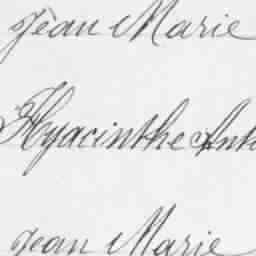 Jean Marie
Hyacinthe Ant
Jean Marie